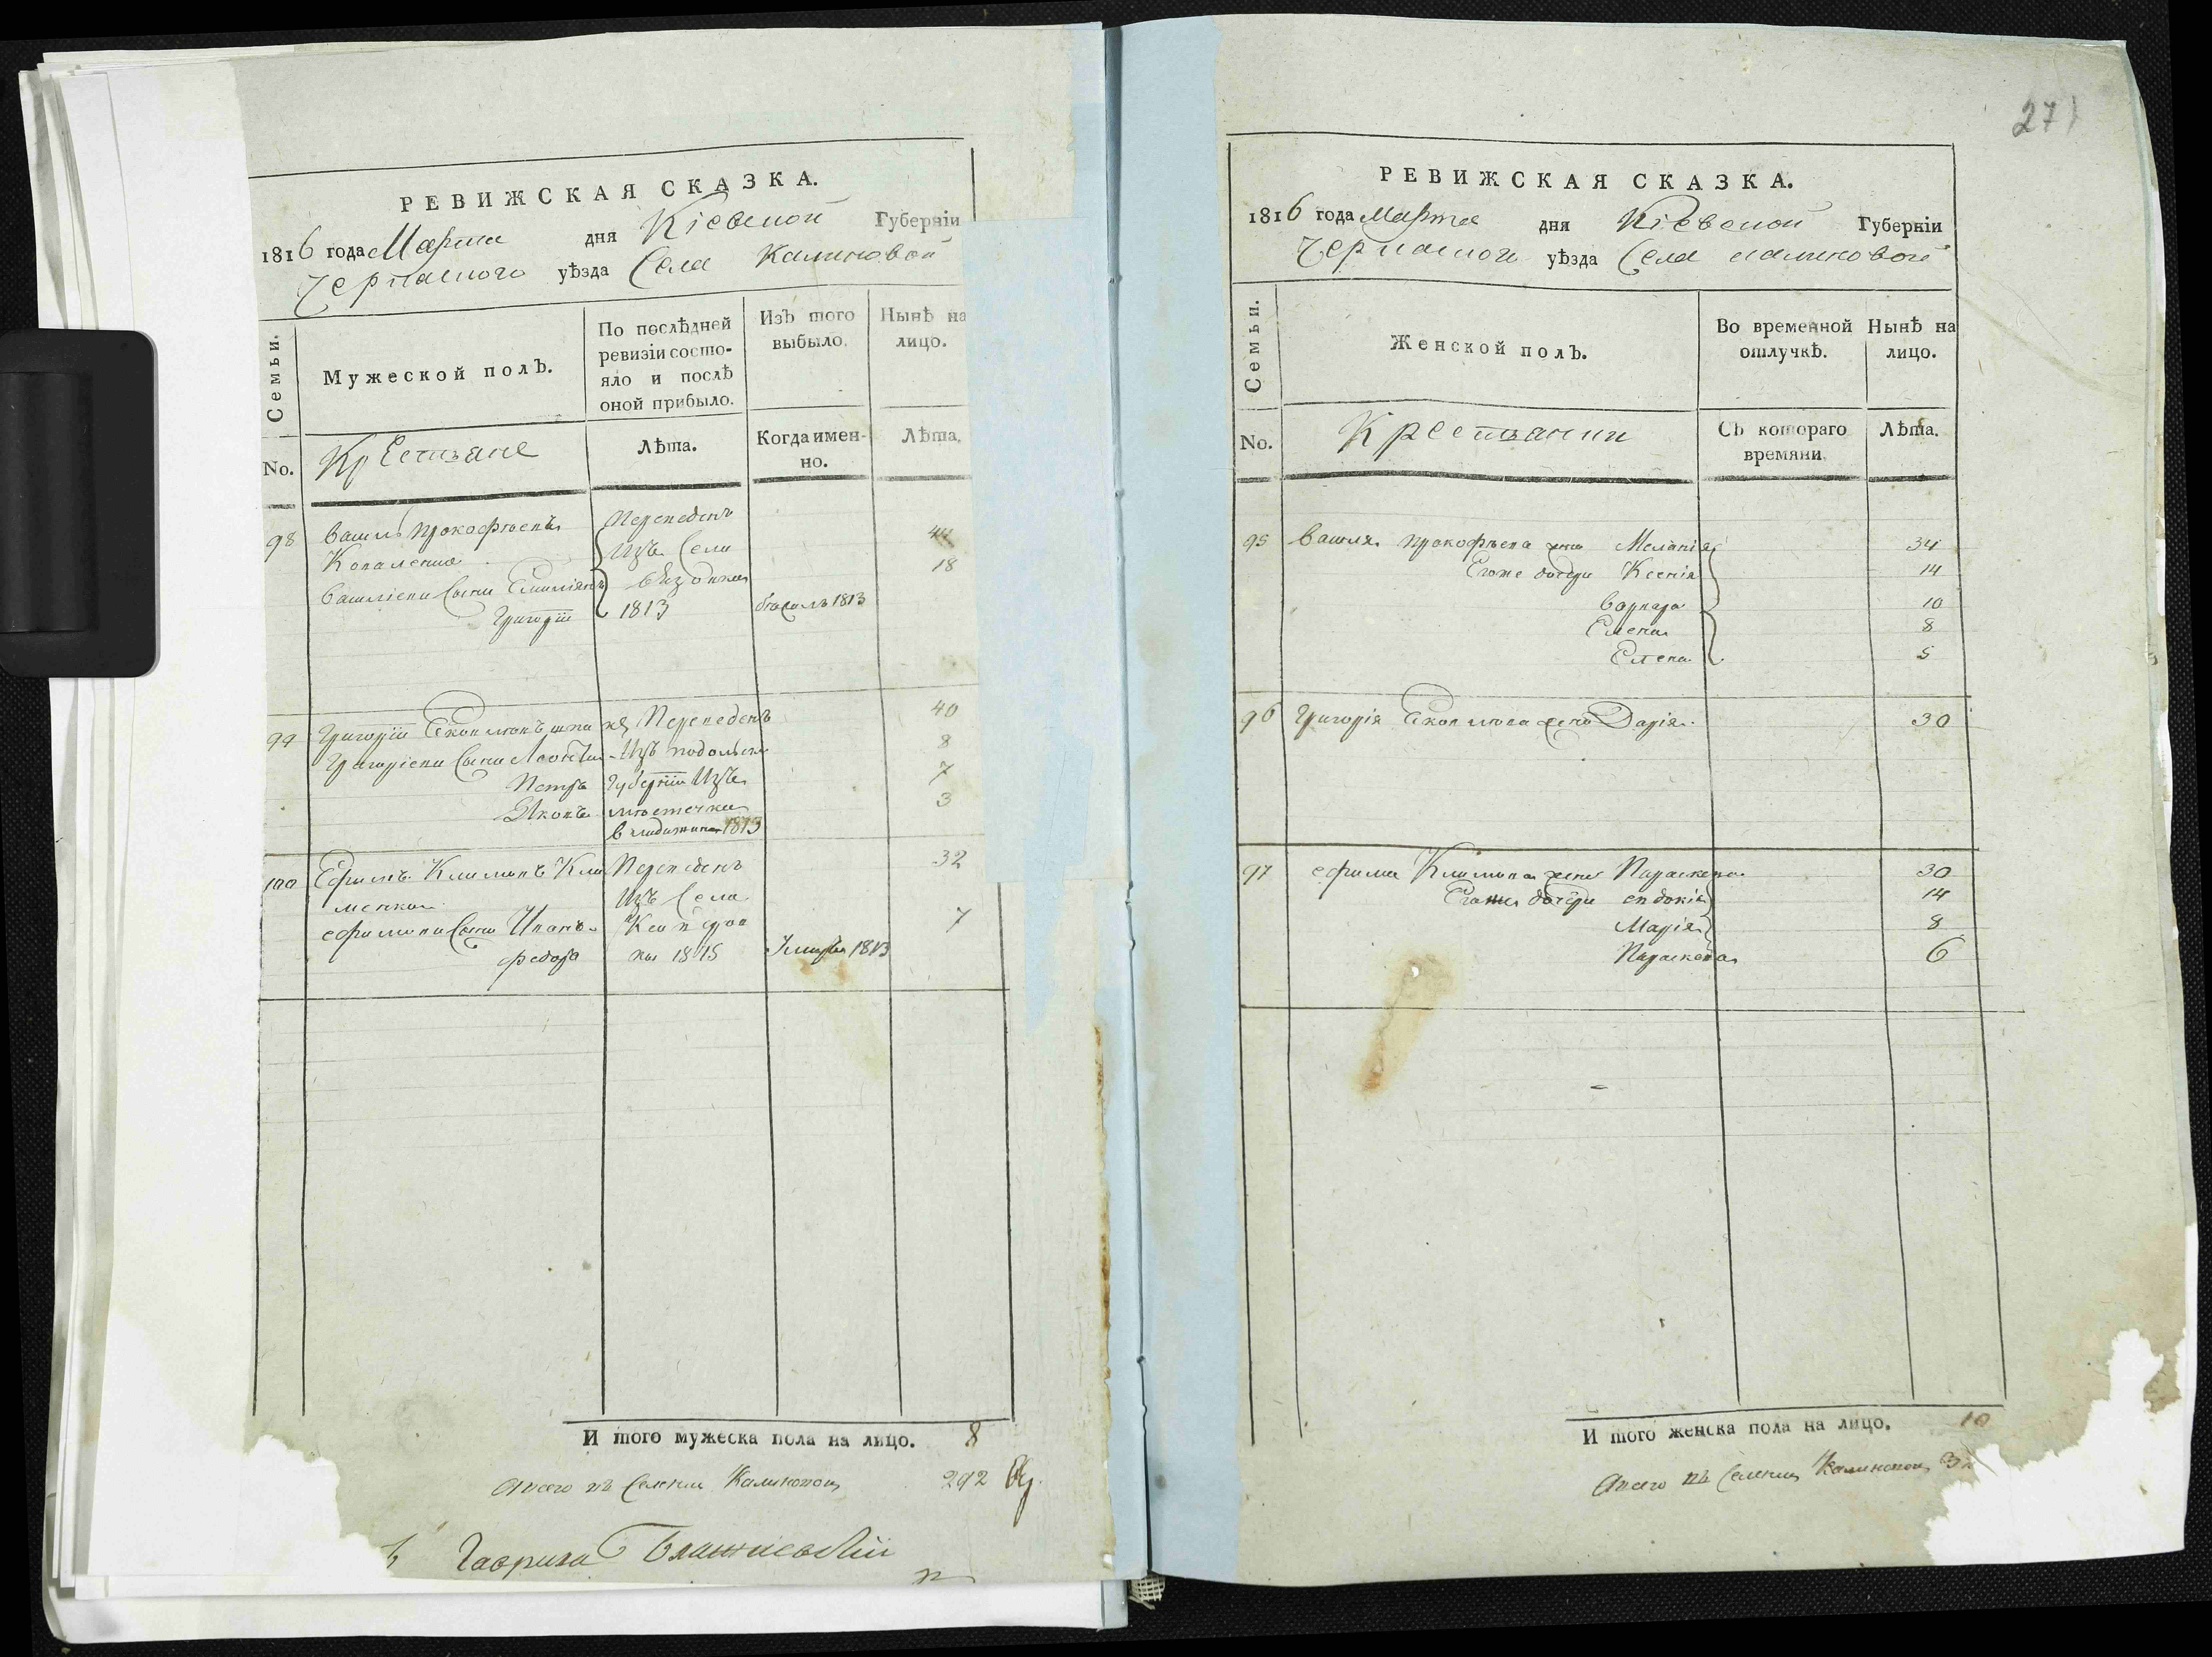 РЕВИЖСКАЯ СКАЗКА.
1816 года Марта дня Кіевской Губерніи
Черкаского уѣзда Села Калиновой
Семьи.
Мужеской полъ.
По послѣдней ревизіи состояло и послѣ оной прибыло.
Изъ того выбыло.
Нынѣ на лицо.
No.
Крестьяне
Лѣта.
Когда именно.
Лѣта.
98 Василь Прокофьевъ Переведенъ 44
Коваленко Изъ Села 18
Василіеви Сыни Емиліянъ
Григорій 1813 1813
99 Григорій Яковлювъ Переведенъ 40
Григоріеви Сыни Изъ подольской 8
Петръ Губерніи Изъ 7
Яковъ местечка 3
1813
100 Ефимъ Климовъ Кли Переведенъ 32
менко Изъ Села
ефимови Сыни Иванъ 7
федоръ 1815 Умиръ 1813
И того мужеска пола на лицо. 8
Авсего въ Селении Калиновой 292
Гаврила
27
РЕВИЖСКАЯ СКАЗКА.
1816 года Марта дня Кіевской Губерніи
Черкаского уѣзда Села калиновой
Семьи.
Женской полъ.
Во временной отлучкѣ.
Нынѣ на лицо.
No.
Крестьянки
Съ котораго времяни.
Лѣта.
95 Василя Прокофьева жена Меланія 34
Егоже дочери Ксенія 14
Варвара 10
Елена 8
Елена 5
96 Григорія жена Дарія 30
97 ефима Климова жена Параскева 30
Егоже дочери евдокія 14
Марія 8
Параскева 6
И того женска пола на лицо. 10
Авсего въ Селении Калиновой